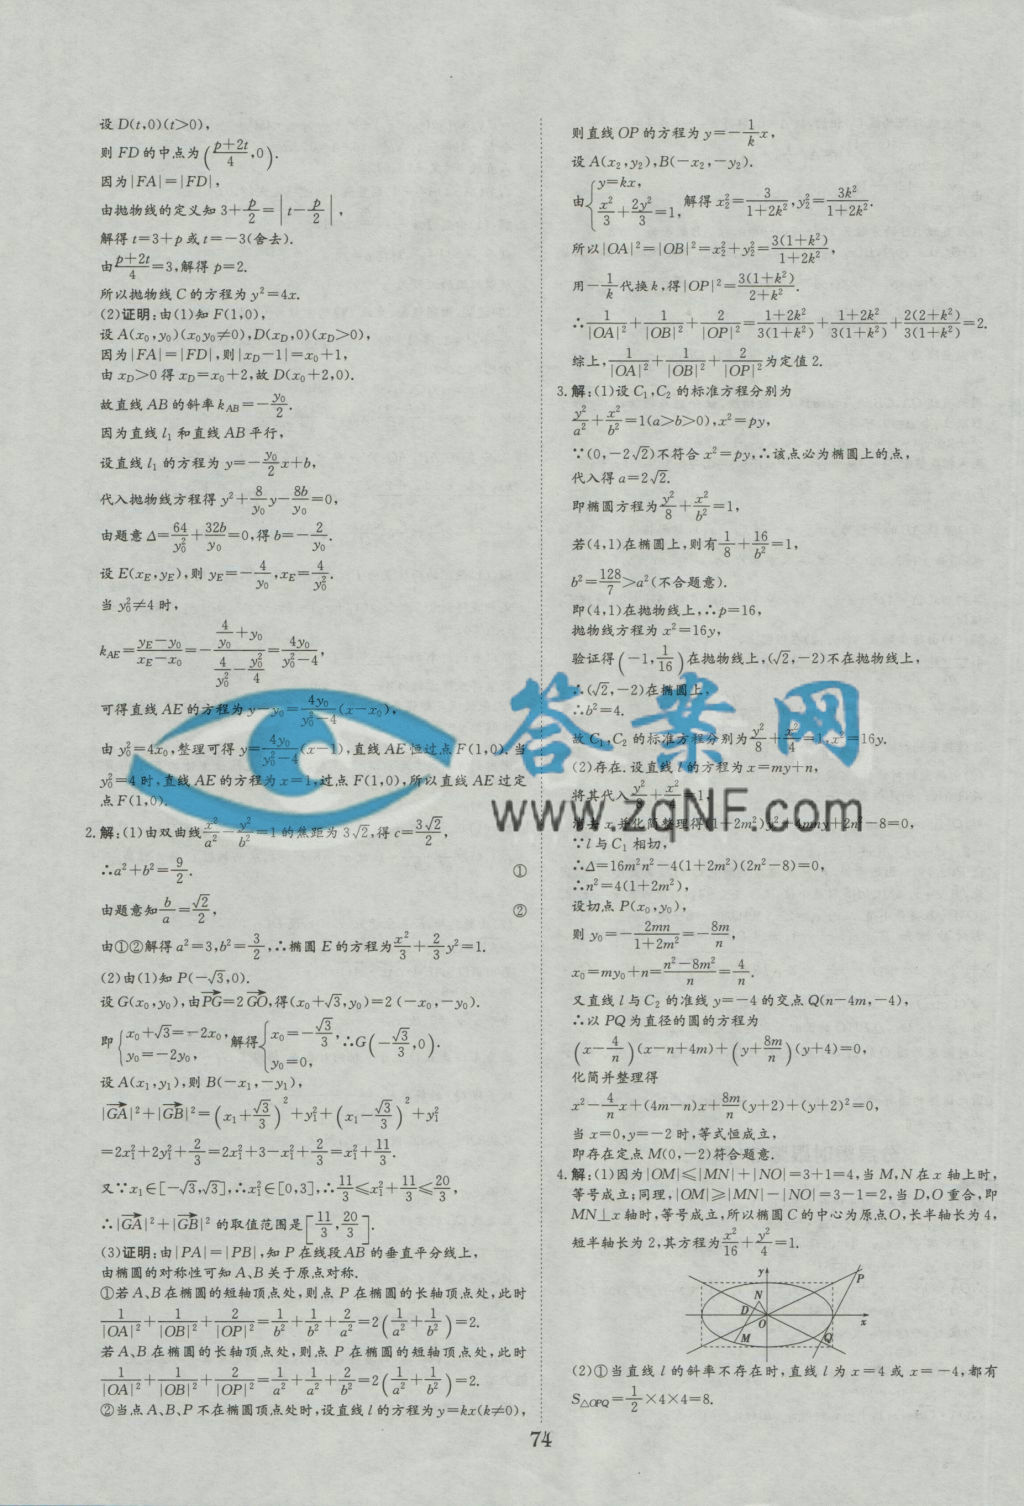 设D(t,0)(t>0),
则FD的中点为((p+2t)/4,0).
因为|FA|=|FD|,
由抛物线的定义知3+p/2=|t-p/2|,
解得t=3+p或t=-3(舍去).
由(p+2t)/4=3,解得p=2.
所以抛物线C的方程为y²=4x.
(2)证明:由(1)知F(1,0),
设A(x₀,y₀)(x₀y₀≠0),D(x_D,0)(x_D>0),
因为|FA|=|FD|,则|x_D-1|=x₀+1,
由x_D>0得x_D=x₀+2,故D(x₀+2,0).
故直线AB的斜率k_AB=-y₀/2.
因为直线l₁和直线AB平行,
设直线l₁的方程为y=-(y₀/2)x+b,
代入抛物线方程得y²+(8/y₀)y-8b/y₀=0,
由题意Δ=64/y₀²+32b/y₀=0,得b=-2/y₀.
设E(x_E,y_E),则y_E=-4/y₀,x_E=4/y₀².
当y₀²≠4时,
k_AE=(y_E-y₀)/(x_E-x₀)=-(4/y₀+y₀)/(4/y₀²-y₀²/4)=4y₀/(y₀²-4),
可得直线AE的方程为y-y₀=4y₀/(y₀²-4)(x-x₀),
由y₀²=4x₀,整理可得y=4y₀/(y₀²-4)(x-1),直线AE恒过点F(1,0).当
y₀²=4时,直线AE的方程为x=1,过点F(1,0),所以直线AE过定
点F(1,0).
2.解:(1)由双曲线x²/a²-y²/b²=1的焦距为3√2,得c=3√2/2,
∴a²+b²=9/2. ①
由题意知b/a=√2/2, ②
由①②解得a²=3,b²=3/2,∴椭圆E的方程为x²/3+(2/3)y²=1.
(2)由(1)知P(-√3,0).
设G(x₀,y₀),由PG→=2GO→,得(x₀+√3,y₀)=2(-x₀,-y₀).
即{x₀+√3=-2x₀, y₀=-2y₀, 解得{x₀=-√3/3, y₀=0, ∴G(-√3/3,0).
设A(x₁,y₁),则B(-x₁,-y₁),
|GA→|²+|GB→|²=(x₁+√3/3)²+y₁²+(x₁-√3/3)²+y₁²
=2x₁²+2y₁²+2/3=2x₁²+3-x₁²+2/3=x₁²+11/3.
又∵x₁∈[-√3,√3],∴x₁²∈[0,3],∴11/3≤x₁²+11/3≤20/3,
∴|GA→|²+|GB→|²的取值范围是[11/3,20/3].
(3)证明:由|PA|=|PB|,知P在线段AB的垂直平分线上,
由椭圆的对称性可知A、B关于原点对称.
①若A、B在椭圆的短轴顶点处,则点P在椭圆的长轴顶点处,此时
1/|OA|²+1/|OB|²+2/|OP|²=1/b²+1/b²+2/a²=2(1/a²+1/b²)=2.
若A、B在椭圆的长轴顶点处,则点P在椭圆的短轴顶点处,此时
1/|OA|²+1/|OB|²+2/|OP|²=1/a²+1/a²+2/b²=2(1/a²+1/b²)=2.
②当点A、B、P不在椭圆顶点处时,设直线l的方程为y=kx(k≠0),
则直线OP的方程为y=-(1/k)x,
设A(x₂,y₂),B(-x₂,-y₂).
由{y=kx, x²/3+2y²/3=1, 解得x₂²=3/(1+2k²),y₂²=3k²/(1+2k²).
所以|OA|²=|OB|²=x₂²+y₂²=3(1+k²)/(1+2k²),
用-1/k代换k,得|OP|²=3(1+k²)/(2+k²).
∴1/|OA|²+1/|OB|²+2/|OP|²=(1+2k²)/3(1+k²)+(1+2k²)/3(1+k²)+2(2+k²)/3(1+k²)=2.
综上,1/|OA|²+1/|OB|²+2/|OP|²为定值2.
3.解:(1)设C₁,C₂的标准方程分别为
y²/a²+x²/b²=1(a>b>0),x²=py,
∵(0,-2√2)不符合x²=py,∴该点必为椭圆上的点,
代入得a=2√2.
即椭圆方程为y²/8+x²/b²=1,
若(4,1)在椭圆上,则有1/8+16/b²=1,
b²=128/7>a²(不合题意).
即(4,1)在抛物线上,∴p=16,
抛物线方程为x²=16y,
验证得(-1,1/16)在抛物线上,(√2,-2)不在抛物线上,
∴(√2,-2)在椭圆上,
∴b²=4.
故C₁,C₂的标准方程分别为y²/8+x²/4=1,x²=16y.
(2)存在.设直线l的方程为x=my+n,
将其代入y²/8+x²/4=1,
消去x并化简整理得(1+2m²)y²+4mny+2n²-8=0,
∵l与C₁相切,
∴Δ=16m²n²-4(1+2m²)(2n²-8)=0,
∴n²=4(1+2m²),
设切点P(x₀,y₀),
则y₀=-2mn/(1+2m²)=-8m/n,
x₀=my₀+n=(n²-8m²)/n=4/n.
又直线l与C₂的准线y=-4的交点Q(n-4m,-4),
∴以PQ为直径的圆的方程为
(x-4/n)(x-n+4m)+(y+8m/n)(y+4)=0,
化简并整理得
x²-(4/n)x+(4m-n)x+(8m/n)(y+2)+(y+2)²=0,
当x=0,y=-2时,等式恒成立,
即存在定点M(0,-2)符合题意.
4.解:(1)因为|OM|≤|MN|+|NO|=3+1=4,当M,N在x轴上时,
等号成立;同理,|OM|≥|MN|-|NO|=3-1=2,当D,O重合,即
MN⊥x轴时,等号成立,所以椭圆C的中心为原点O,长半轴长为4,
短半轴长为2,其方程为x²/16+y²/4=1.
y
P
N
D
O
x
M
Q
(2)①当直线l的斜率不存在时,直线l为x=4或x=-4,都有
S△OPQ=1/2×4×4=8.
74
答案网
www.zqNF.com